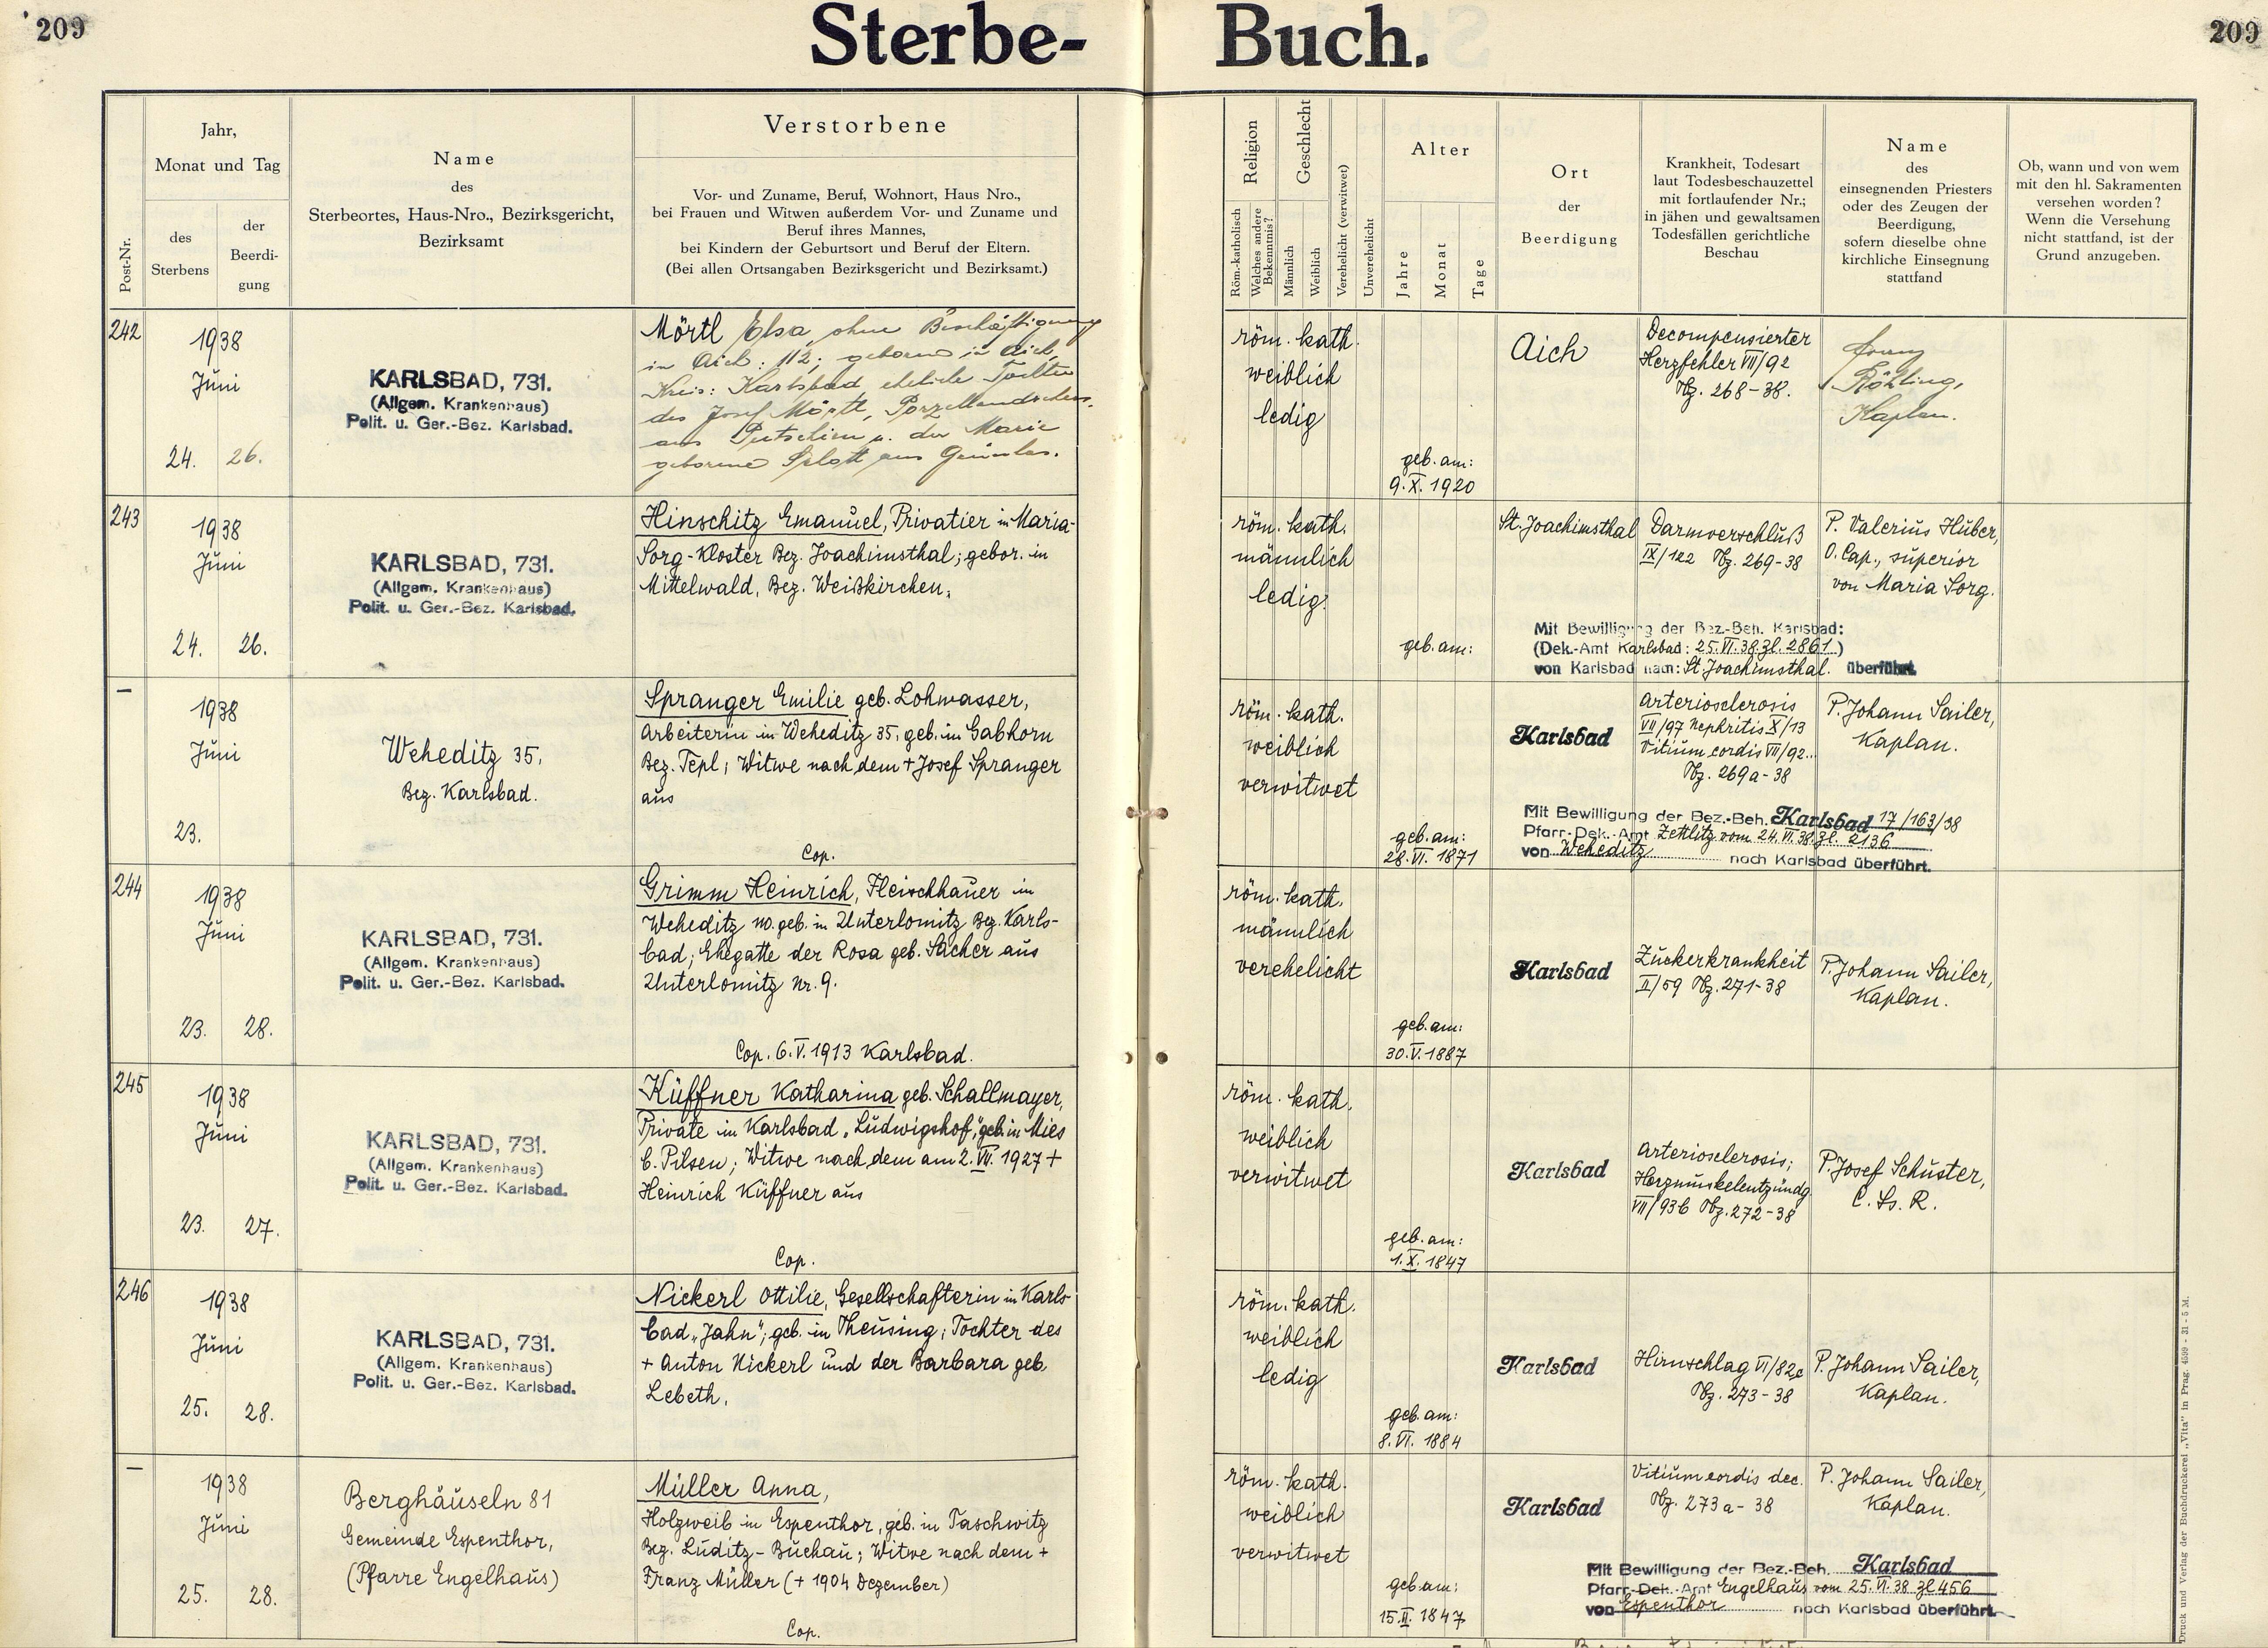 209
Sterbe-Buch.
209
Post-Nr.
Jahr,
Monat und Tag
des
Sterbens
der
Beerdi-
gung
Name
des
Sterbeortes, Haus-Nro., Bezirksgericht,
Bezirksamt
Verstorbene
Vor- und Zuname, Beruf, Wohnort, Haus Nro.,
bei Frauen und Witwen außerdem Vor- und Zuname und
Beruf ihres Mannes,
bei Kindern der Geburtsort und Beruf der Eltern.
(Bei allen Ortsangaben Bezirksgericht und Bezirksamt.)
Religion
Röm.-katholisch
Welches andere
Bekenntnis?
Geschlecht
Männlich
Weiblich
Verehelicht (verwitwet)
Unverehelicht
Alter
Jahre
Monat
Tage
Ort
der
Beerdigung
Krankheit, Todesart
laut Todesbeschauzettel
mit fortlaufender Nr.;
in jähen und gewaltsamen
Todesfällen gerichtliche
Beschau
Name
des
einsegnenden Priesters
oder des Zeugen der
Beerdigung,
sofern dieselbe ohne
kirchliche Einsegnung
stattfand
Ob, wann und von wem
mit den hl. Sakramenten
versehen worden?
Wenn die Versehung
nicht stattfand, ist der
Grund anzugeben.
242
1938
Juni
24. 26.
KARLSBAD, 731.
(Allgem. Krankenhaus)
Polit. u. Ger.-Bez. Karlsbad.
Mörtl Elsa, ohne Beschäftigung
in Aich: 112; geboren in Aich,
Kreis: Karlsbad eheliche Tochter
des Josef Mörtl,
aus Putschirn u. der Marie
geborene aus
röm. kath.
weiblich
ledig
geb. am:
9. X. 1920
Aich
Decompensierter
Herzfehler VII/92
Tbz. 268-38.
Franz
Röhling,
Kaplan.
243
1938
Juni
24. 26.
KARLSBAD, 731.
(Allgem. Krankenhaus)
Polit. u. Ger.-Bez. Karlsbad.
Hinschitz Emanuel, Privatier in Maria-
Sorg-Kloster Bez. Joachimsthal; gebor. in
Mittelwald, Bez. Weißkirchen,
röm. kath.
männlich
ledig.
geb. am:
St. Joachimsthal
Darmverschluß
IX/122 Tbz. 269-38
P. Valerius Huber,
O. Cap., superior
von Maria Sorg.
Mit Bewilligung der Bez.-Beh. Karlsbad:
(Dek.-Amt Karlsbad: 25. VI. 38. Zl. 2861)
von Karlsbad nach: St. Joachimsthal. überführt.
–
1938
Juni
23.
Weheditz 35,
Bez. Karlsbad.
Spranger Emilie geb. Lohwasser,
Arbeiterin in Weheditz 35, geb. in Gabhorn
Bez. Tepl; Witwe nach dem + Josef Spranger
aus
Cop.
röm. kath.
weiblich
verwitwet
geb. am:
28. VI. 1871
Karlsbad
Arteriosclerosis
VII/97 Nephritis X/13
Vitium cordis VII/92..
Tbz. 269a-38
P. Johann Sailer,
Kaplan.
Mit Bewilligung der Bez.-Beh. Karlsbad 17/163/38
Pfarr-Dek.-Amt Zettlitz vom 24. VI. 38. Zl. 2136
von Weheditz nach Karlsbad überführt.
244
1938
Juni
23. 28.
KARLSBAD, 731.
(Allgem. Krankenhaus)
Polit. u. Ger.-Bez. Karlsbad.
Grimm Heinrich, Fleischhauer in
Weheditz 110. geb. in Unterlomitz Bez. Karls-
bad; Ehegatte der Rosa geb. Sacher aus
Unterlomitz Nr. 9.
Cop. 6. V. 1913 Karlsbad.
röm. kath.
männlich
verehelicht
geb. am:
30. V. 1887
Karlsbad
Zuckerkrankheit
II/59 Tbz. 271-38
P. Johann Sailer,
Kaplan.
245
1938
Juni
23. 27.
KARLSBAD, 731.
(Allgem. Krankenhaus)
Polit. u. Ger.-Bez. Karlsbad.
Küffner Katharina geb. Schallmayer,
Private in Karlsbad „Ludwigshof," geb. in Mies
b. Pilsen; Witwe nach dem am 2. VII. 1927 +
Heinrich Küffner aus
Cop.
röm. kath.
weiblich
verwitwet
geb. am:
1. X. 1847
Karlsbad
Arteriosclerosis;
Herzmuskelentzündg.
VII/93b Tbz. 272-38
P. Josef Schuster,
C. Ss. R.
246
1938
Juni
25. 28.
KARLSBAD, 731.
(Allgem. Krankenhaus)
Polit. u. Ger.-Bez. Karlsbad.
Nickerl Ottilie, Gesellschafterin in Karls-
bad „Jahn"; geb. in Theusing; Tochter des
+ Anton Nickerl und der Barbara geb.
Lebeth.
röm. kath.
weiblich
ledig
geb. am:
8. VI. 1884
Karlsbad
Hirnschlag VI/82c
Tbz. 273-38
P. Johann Sailer,
Kaplan.
–
1938
Juni
25. 28.
Berghäuseln 81
Gemeinde Espenthor,
(Pfarre Engelhaus)
Müller Anna,
Holzweib in Espenthor, geb. in Taschwitz
Bez. Luditz-Buchau; Witwe nach dem +
Franz Müller (+ 1904 Dezember)
Cop.
röm. kath.
weiblich
verwitwet
geb. am:
15. II. 1847
Karlsbad
Vitium cordis dec.
Tbz. 273a-38
P. Johann Sailer,
Kaplan.
Mit Bewilligung der Bez.-Beh. Karlsbad
Pfarr-Dek.-Amt Engelhaus vom 25. VI. 38 Zl 456
von Espenthor nach Karlsbad überführt.
Druck und Verlag der Buchdruckerei „Vita" in Prag. 4599 - 31 - 5 M.